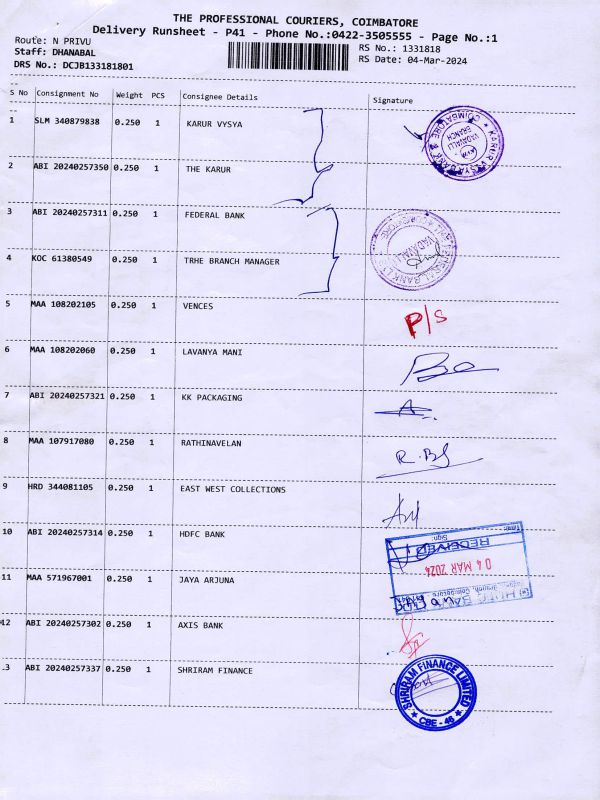 THE PROFESSIONAL COURIERS, COIMBATORE
Delivery Runsheet - P41 - Phone No.:0422-3505555 - Page No.:1
Route: N PRIVU
RS No.: 1331818
Staff: DHANABAL
RS Date: 04-Mar-2024
DRS No.: DCJB133181801
S No Consignment No Weight PCS Consignee Details Signature
1 SLM 340879838 0.250 1 KARUR VYSYA
2 ABI 20240257350 0.250 1 THE KARUR
3 ABI 20240257311 0.250 1 FEDERAL BANK
4 KOC 61380549 0.250 1 TRHE BRANCH MANAGER
5 MAA 108202105 0.250 1 VENCES P/S
6 MAA 108202060 0.250 1 LAVANYA MANI
7 ABI 20240257321 0.250 1 KK PACKAGING
8 MAA 107917080 0.250 1 RATHINAVELAN
9 HRD 344081105 0.250 1 EAST WEST COLLECTIONS
10 ABI 20240257314 0.250 1 HDFC BANK
11 MAA 571967001 0.250 1 JAYA ARJUNA
12 ABI 20240257302 0.250 1 AXIS BANK
.3 ABI 20240257337 0.250 1 SHRIRAM FINANCE
KARUR VYSYA BANK
COIMBATORE
VADAVALLI
BRANCH
VADAVALLI
Time:
Sign:
RECEIVED
04 MAR 2024
SHRIRAM FINANCE LIMITED
CBE - 46